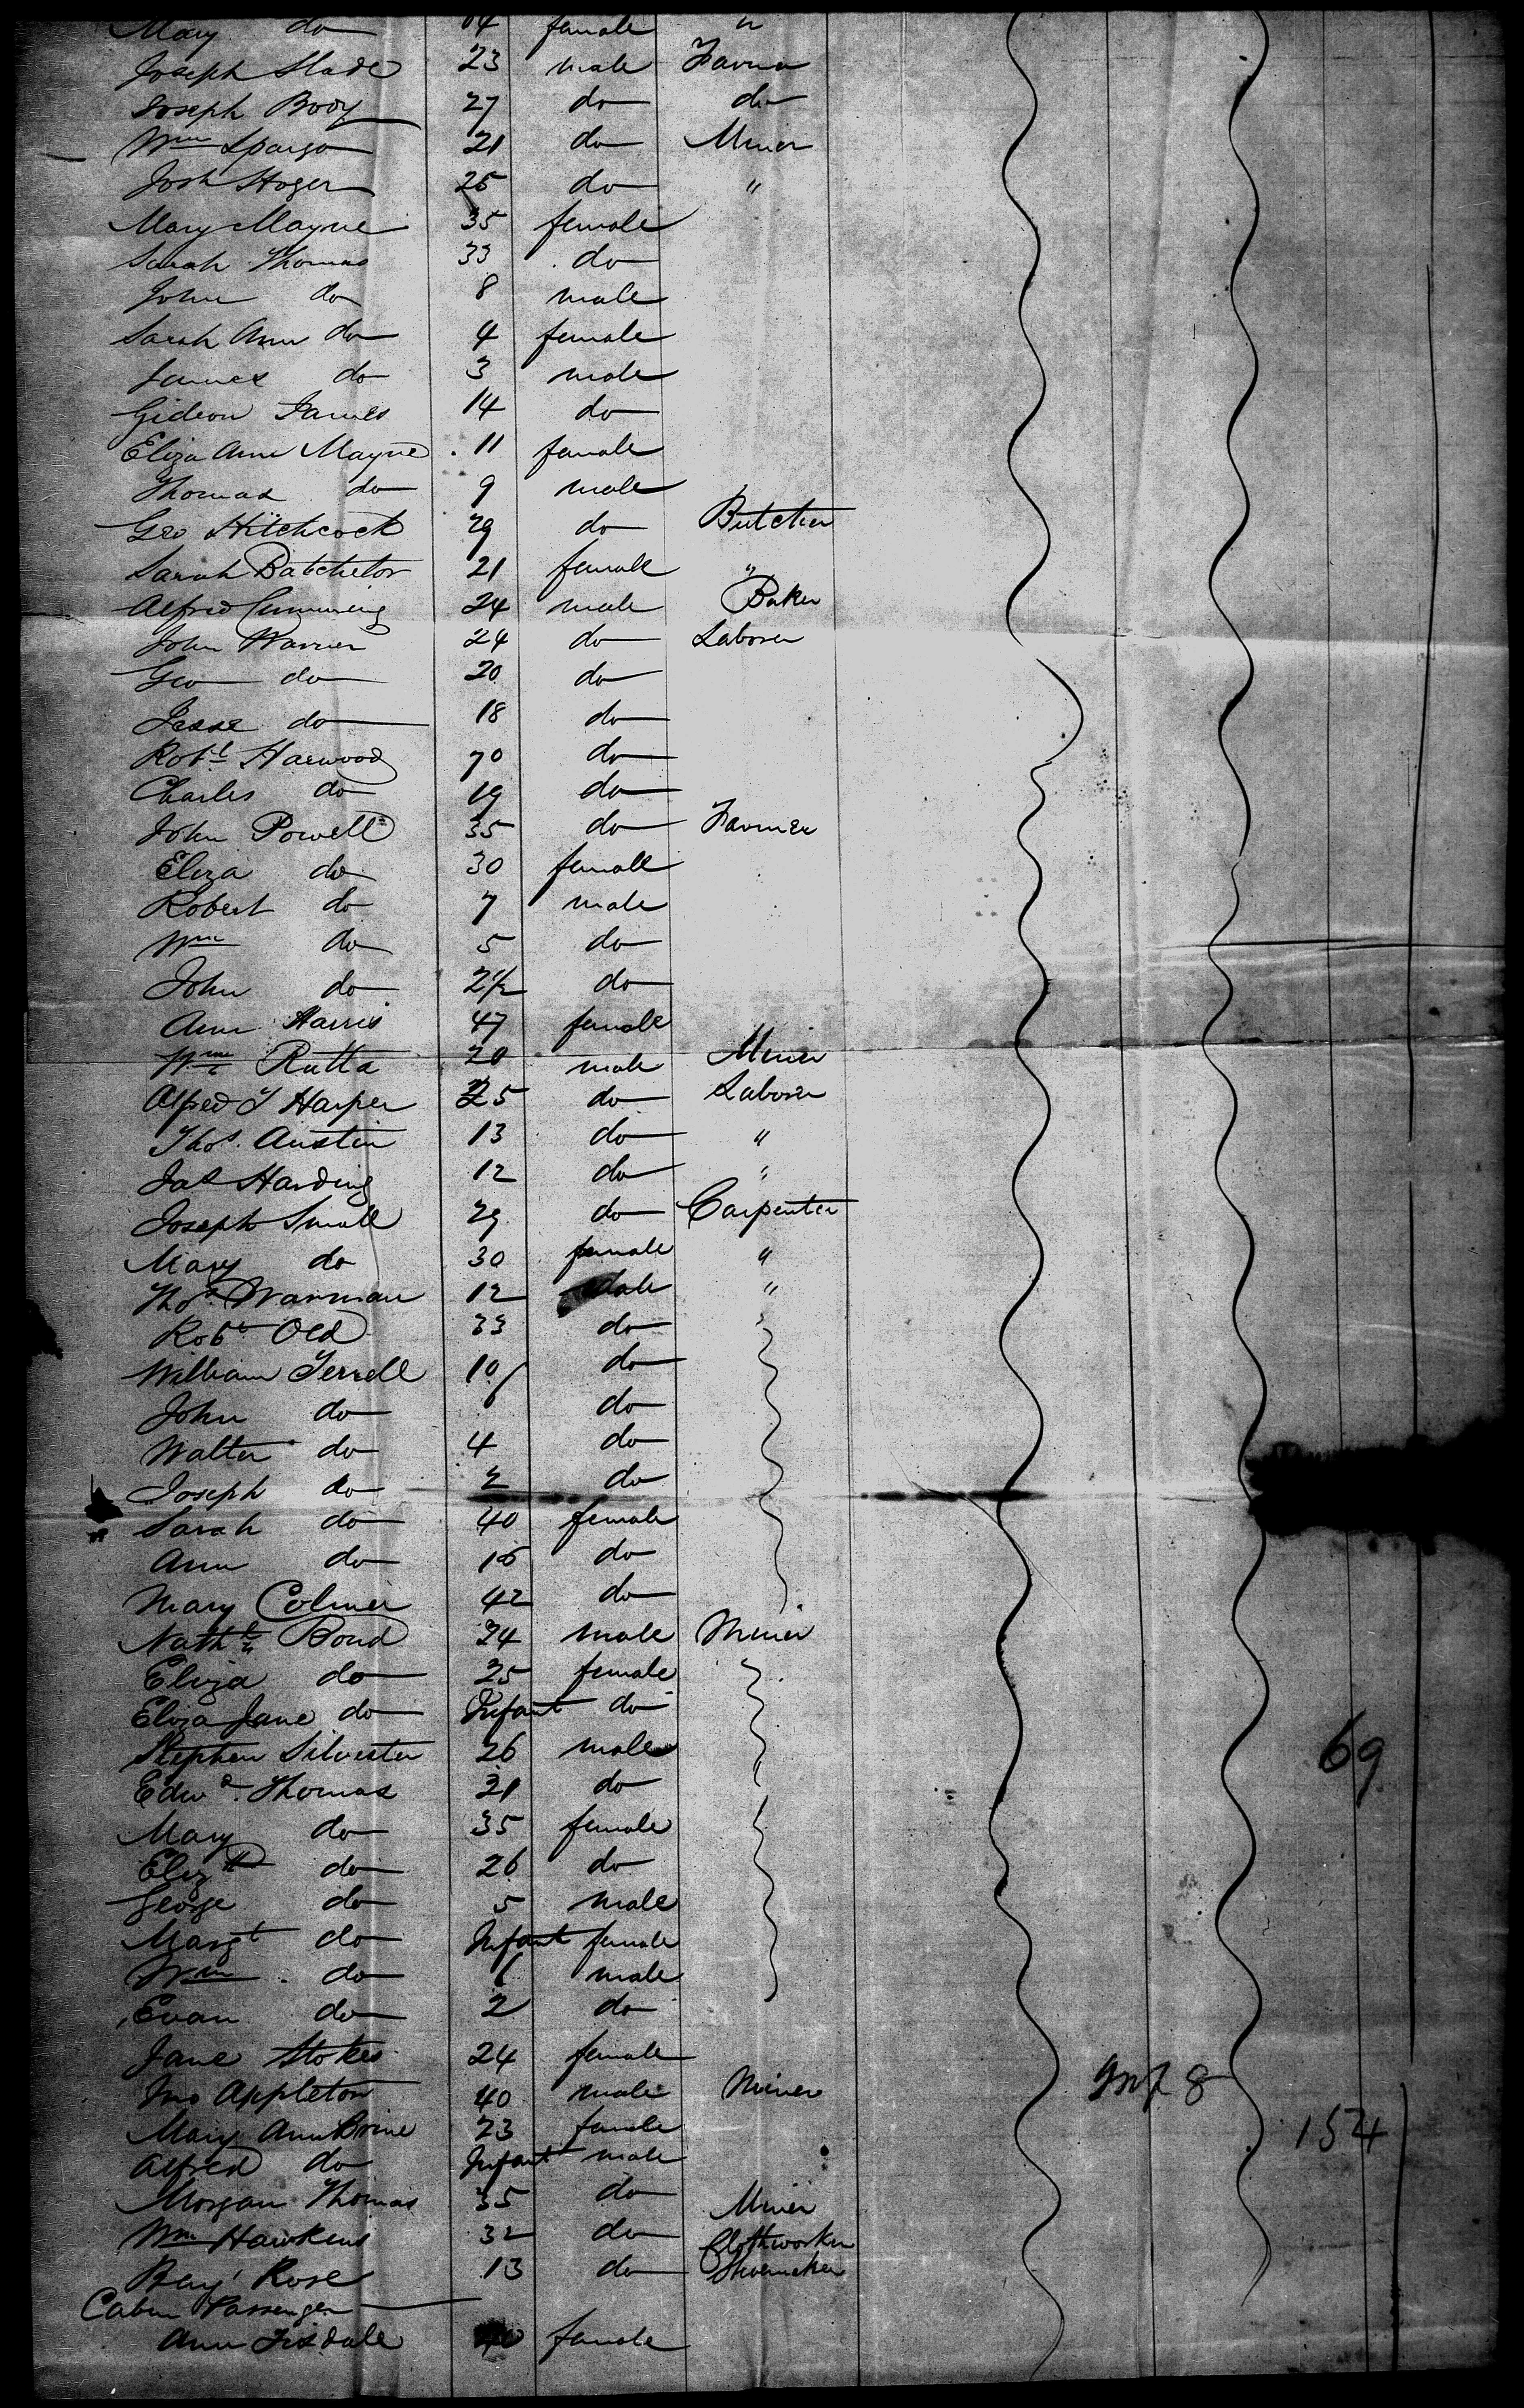 Mary do 64 female "
Joseph Slade 23 male Farmer
Joseph Body 27 do do
Wm Spargo 21 do Miner
Josh Hoger 25 do "
Mary Mayne 35 female
Sarah Thomas 33 do
John do 8 male
Sarah Ann do 4 female
James do 3 male
Gideon James 14 do
Eliza Ann Mayne 11 female
Thomas do 9 male
Geo Hitchcock 29 do Butcher
Sarah Batchelor 21 female "
Alfred Cumming 24 male Baker
John Warner 24 do Laborer
Geo do 20 do
Jesse do 18 do
Robt Harwood 70 do
Charles do 19 do
John Powell 35 do Farmer
Eliza do 30 female
Robert do 7 male
Wm do 5 do
John do 2 1/2 do
Ann Harris 47 female
Wm Rutta 20 male Miner
Alfred J Harper 25 do Laborer
Thos. Austin 13 do "
Jas Harding 12 do "
Joseph Small 29 do Carpenter
Mary do 30 female "
Thos Warman 12 male "
Robt Old 33 do "
William Terrell 10 do
John do 6 do
Walter do 4 do
Joseph do 2 do
Sarah do 40 female
Ann do 16 do
Mary Colmer 42 do
Nathl Bond 24 male Miner
Eliza do 25 female
Eliza Jane do Infant do
Stephen Silvester 26 male 69
Edwd. Thomas 31 do "
Mary do 35 female
Eliz do 26 do
George do 5 male
Margt do Infant female
Wm do 6 male
Evan do 2 do
Jane Stokes 24 female
Jno Appleton 40 male Miner Inf 8
Mary Ann Brine 23 female 154
Alfred do Infant male
Morgan Thomas 35 do Miner
Wm Hawkens 32 do Clothworker
Benj Rose 13 do Shoemaker
Cabin Passenger
Ann Tisdale 40 female